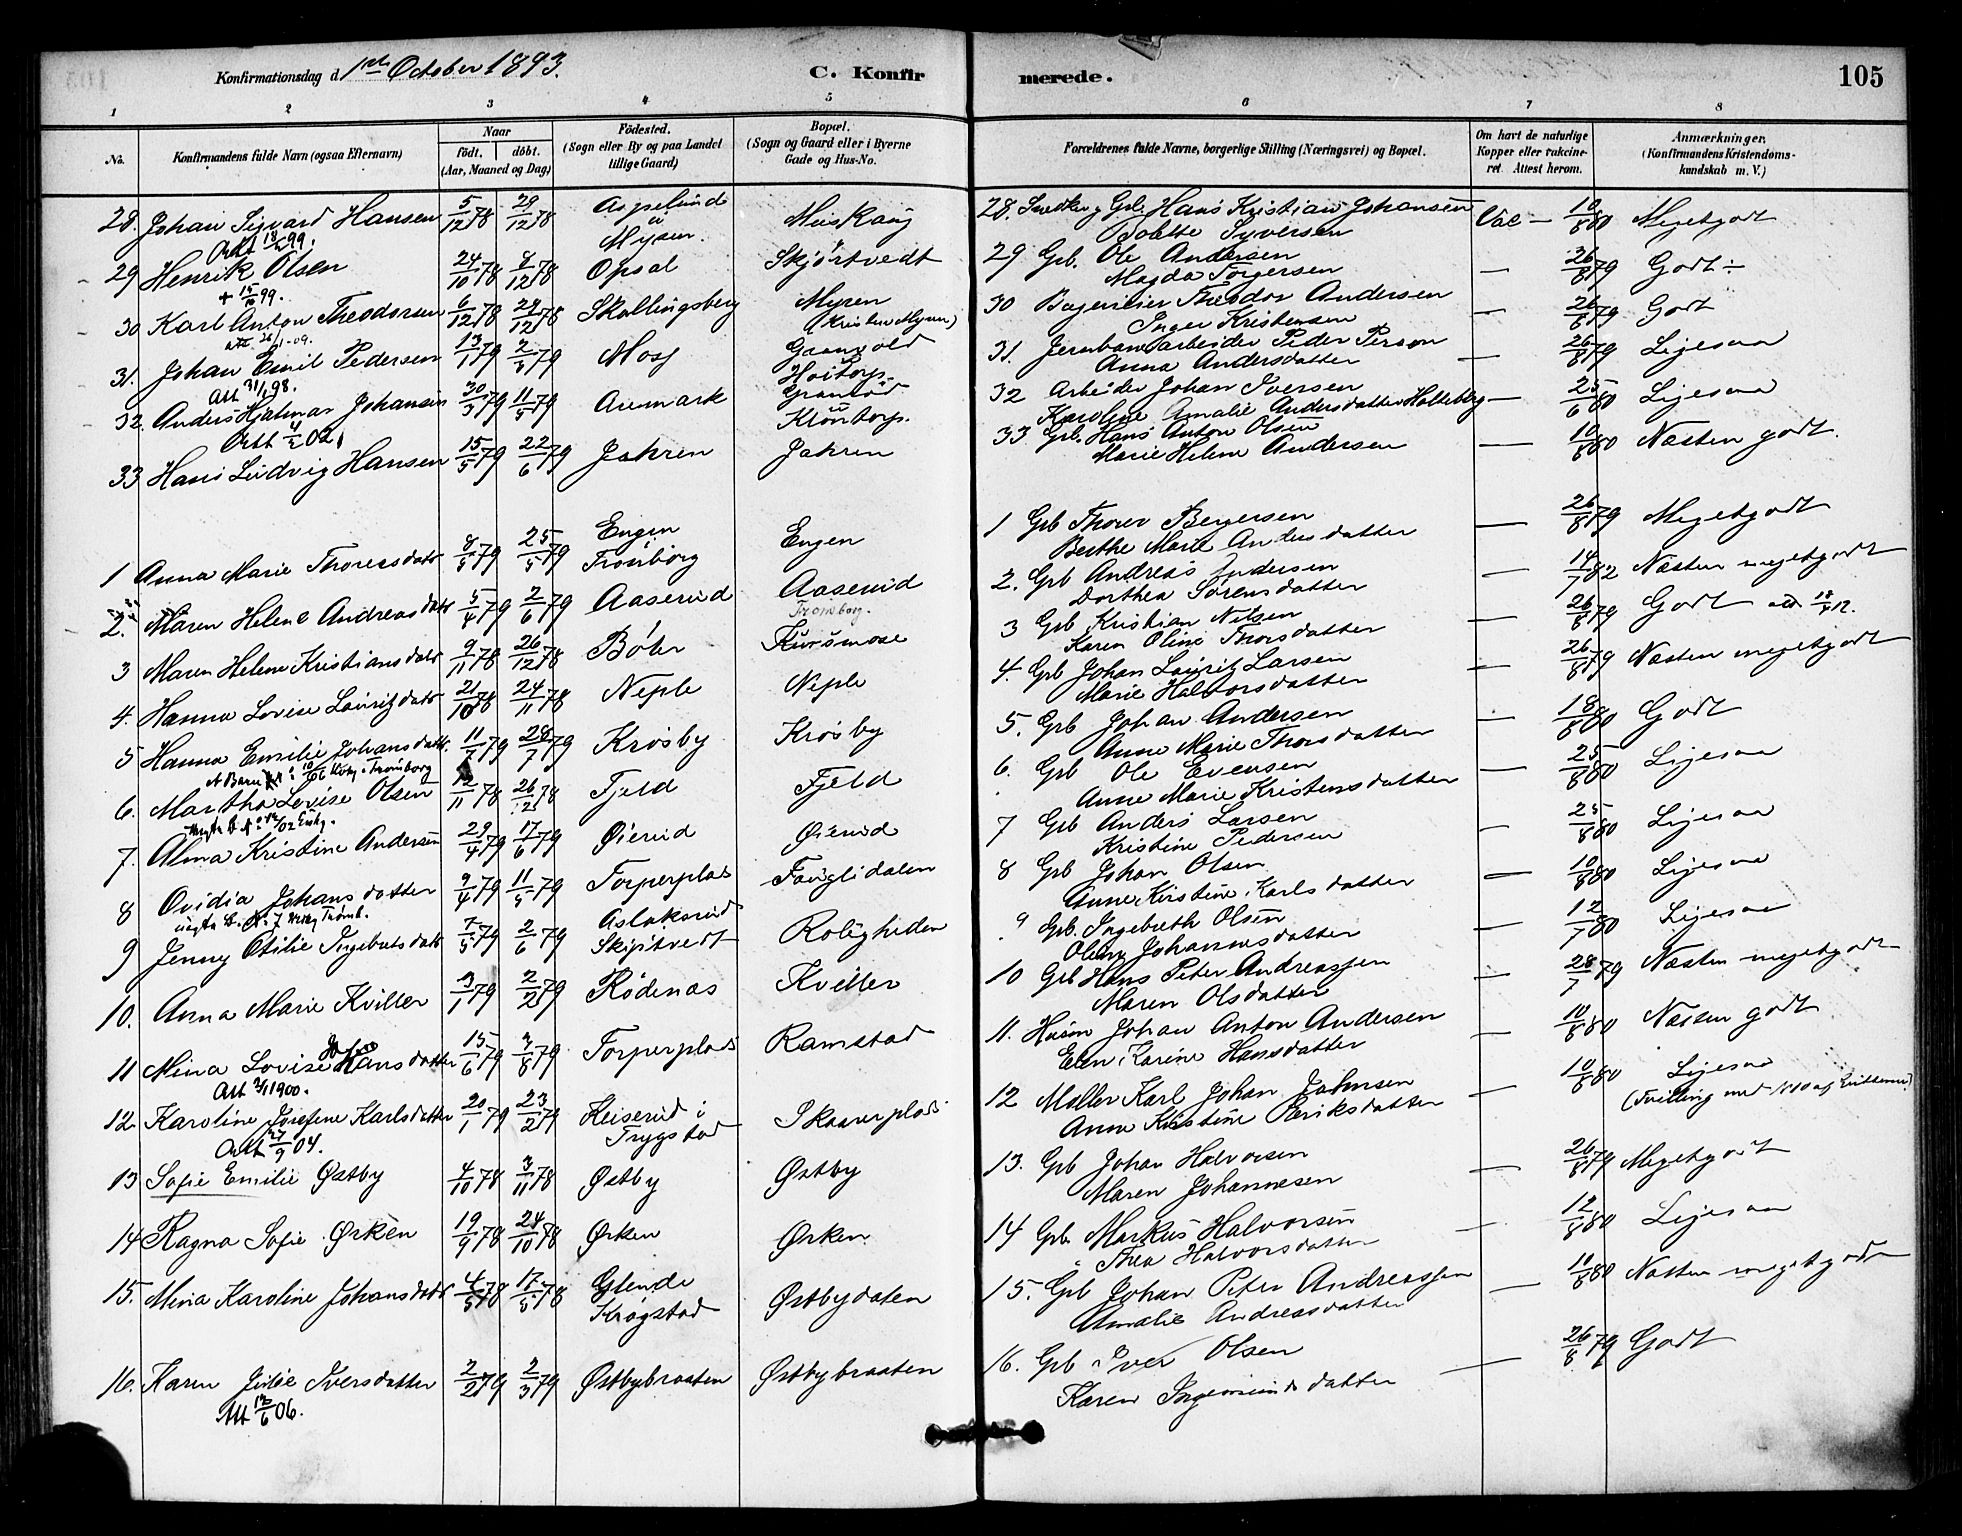 Konfirmationsdag d. 1ste October 1893.
C. Konfir merede.
105
1 2 3 4 5 6 7 8
No.
Konfirmandens fulde Navn (ogsaa Efternavn)
Naar
født, døbt.
(Aar, Maaned og Dag)
Födested.
(Sogn eller By og paa Landet
tillige Gaard)
Bopæl.
(Sogn og Gaard eller i Byerne
Gade og Hus-No.
Forældrenes fulde Navne, borgerlige Stilling (Næringsvei) og Bopæl.
Om havt de naturlige
Kopper eller vakcine-
ret. Attest herom.
Anmærkninger,
(Konfirmandens Kristendoms-
kundskab m. V.)
28. Johan Sigvard Hansen 5/12 78 29/12 78 Mysen. 28. Hans Kristian Johansen Vac — 10/8 80 Megetgodt
Syversen
29 Henrik Olsen 24/10 78 8/12 78 Opsal Skjørtvedt 29 Grb. Ole Andersen — 26/8 79 Godt ÷
Magda Torgersen
+ 15/10 99.
30 Karl Anton Theodorsen 6/12 78 29/12 78 Skallingsberg Myren 30 Theodor Andersen — 26/8 79 Godt
Inger Kristensen
31. Johan Emil Pedersen 13/1 79 2/3 79 Moss 31. Jernbanearbeider Peder Person — 26/8 79 Ligesaa
Anna Andersdatter
Att 31/1 98.
32. Anders Hjalmar Johansen 30/3 79 11/5 79 Aremark 32 Arbeider Johan Iversen — 25/6 80 Ligesaa
Karoline Amalie Andersdatter Holteberg
Att 4/2 02
33 Hans Ludvig Hansen 15/5 79 22/6 79 Jahren Jahren 33 Grb. Hans Anton Olsen — 10/8 80 Næsten godt.
Marie Helene Andersen
1 Anna Marie Thoresdatr 8/5 79 25/5 79 Engen Trömborg Engen 1 Grb Thorer Bergersen — 26/8 79 Megetgodt
Berthe Marie Andersdatter
2. Maren Helene Andreasdatr 5/4 79 2/6 79 Aaserud Aaserud 2. Grb Andreas Andersen — 14/7 82 Næsten megetgodt
Tromborg.
Dorthea Sørensdatter
3 Maren Helene Kristiansdatr 9/11 78 26/12 78 Böler 3 Grb Kristian Nilsen — 26/8 79 Godt
Karen Oline Thorsdatter
4. Hanna Lovise Lauritzdatr 21/10 78 24/11 78 Neple Neple 4. Grb Johan Lauritz Larsen — 26/8 79 Næsten megetgodt
Marie Halvorsdatter
5 Hanna Emilie Johansdatr. 11/7 79 28/7 79 Krosby Krosby 5. Grb Johan Andersen — 18/8 80 Godt
Anne Marie Thorsdatter
6. Martha Lovise Olsen 12/11 78 26/12 78 Fjeld Fjeld 6. Grb Ole Evensen — 25/8 80 Ligesaa
Anne Marie Kristensdatter
7. Alma Kristine Andersen 29/4 79 17/6 79 Øierud Øierud 7 Grb Anders Larsen — 25/8 80 Ligesaa
Kristine Pedersen
8 Ovidia Johansdatter 9/4 79 11/5 79 Torperplads Fauglidalen 8 Grb Johan Olsen — 10/8 80 Ligesaa
Anne Kirstine Karlsdatter
9 Jenny Otilie Ingebretsdatr 7/5 79 2/6 79 Aslaksrud Skiptvedt Roligheden 9 Grb. Ingebreth Olsen — 12/7 80 Ligesaa
Oline Johannesdatter
10. Anna Marie Kviller 3/1 79 2/2 79 Rödenæs Kviller 10 Grb Hans Peter Andreassen — 28/7 79 Næsten megetgodt
Maren Olsdatter
11 Mina Lovise Johansdatter 15/6 79 3/8 79 Torperplads Ramstad 11. Johan Anton Andersen — 10/8 80 Næsten godt
Elen Karine Hansdatter
12. Karoline Josefine Karlsdatter 20/1 79 23/2 79 Keiserud i Trygstad Skaarerplads 12 Møller Karl Johan Johnsen — 10/8 80 Ligesaa
Anne Kristine Eriksdatter
Att 27/9 04.
13 Sofie Emilie Østby 4/10 78 3/11 78 Østby Østby 13. Grb Johan Halvorsen — 26/8 79 Megetgodt
Maren Johannesen
14 Ragna Sofie Ørken 19/9 78 24/10 78 Ørken Ørken 14 Grb. Markus Halvorsen — 12/8 80 Ligesaa
Thea Halvorsdatter
15. Mina Karoline Johansdatr 4/5 78 17/5 78 Glende Kragstad Østbydalen 15. Grb Johan Peter Andreassen — 10/8 80 Næsten megetgodt
Amalie Andreasdatter
16. Karen Julie Iversdatter 2/2 79 2/3 79 Østbybraaten Østbybraaten 16. Grb Iver Olsen — 26/8 79 Godt
Karen Ingemundsdatter
Att 12/6 06.